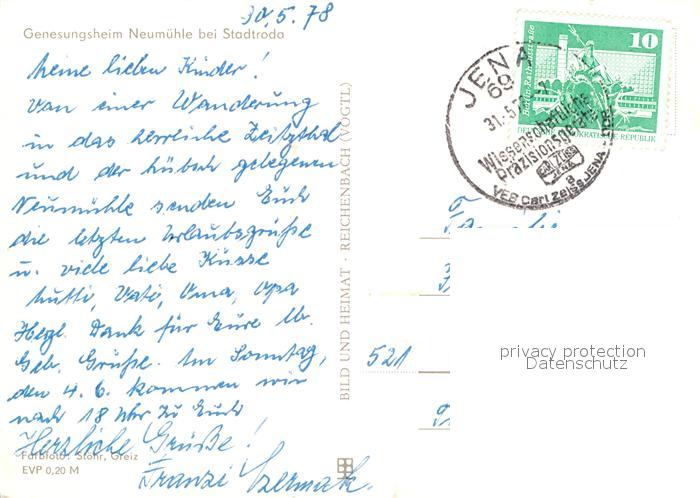 30.5.78
Genesungsheim Neumühle bei Stadtroda
Meine lieben Kinder!
Von einer Wanderung
in das herrliche Zeitztal
und der hübsch gelegenen
Neumühle senden Euch
die letzten Urlaubsgrüße
u. viele liebe Küsse
Mutti, Vati, Oma, Opa
Herzl. Dank für Eure lb.
Geb. Grüße. Im Sonntag,
den 4.6. kommen wir
nach 18 Uhr zu Euch
Herzliche Grüße!
Franzi
Farbfoto: Stöhr, Greiz
EVP 0,20 M
BILD UND HEIMAT · REICHENBACH (VOGTL)
JENA
69
31.5.
Wissenschaftliche
Präzisionsgeräte
CARL ZEISS
JENA
VEB Carl Zeiss JENA · DDR
10
Berlin, Rathausstraße
DEUTSCHE DEMOKRATISCHE REPUBLIK
521
privacy protection
Datenschutz